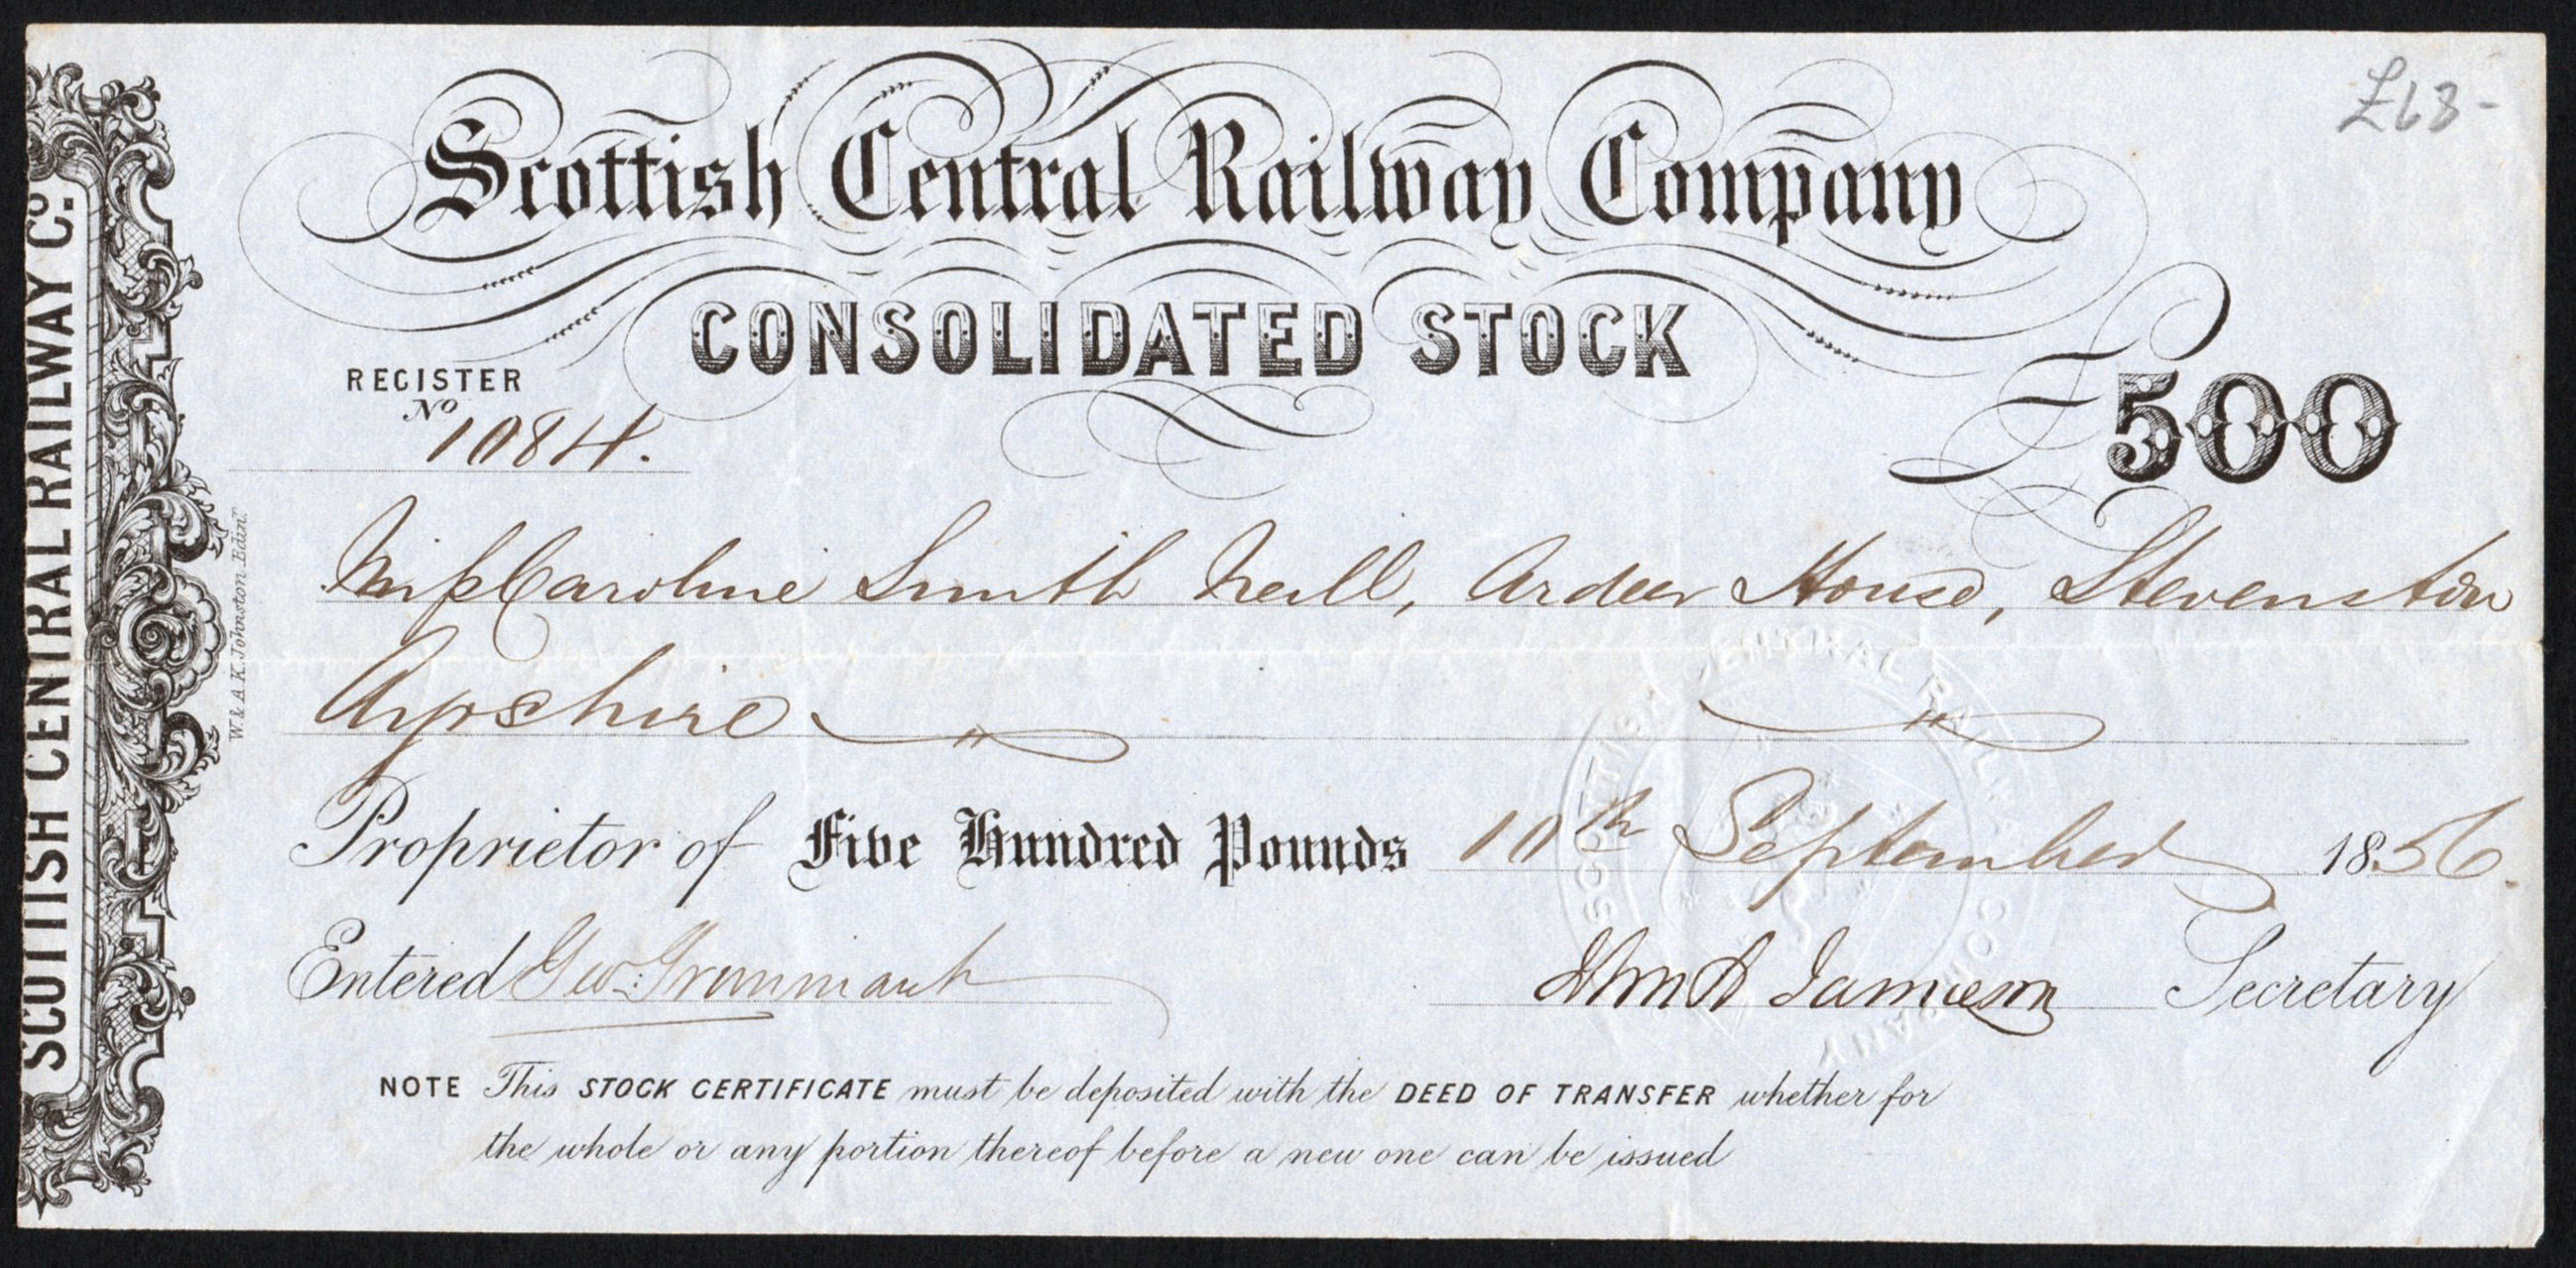 £68-
Scottish Central Railway Company
CONSOLIDATED STOCK
REGISTER
No 1084.
£500
Miss Caroline Smith Neill, Ardeer House, Stevenston
Ayrshire
Proprietor of Five Hundred Pounds 10th September 1856.
Entered Geo:
Jamieson Secretary
NOTE This STOCK CERTIFICATE must be deposited with the DEED OF TRANSFER whether for
the whole or any portion thereof before a new one can be issued
SCOTTISH CENTRAL RAILWAY Co.
W. & A. K. Johnston Edinr.
SCOTTISH CENTRAL RAILWAY COMPANY